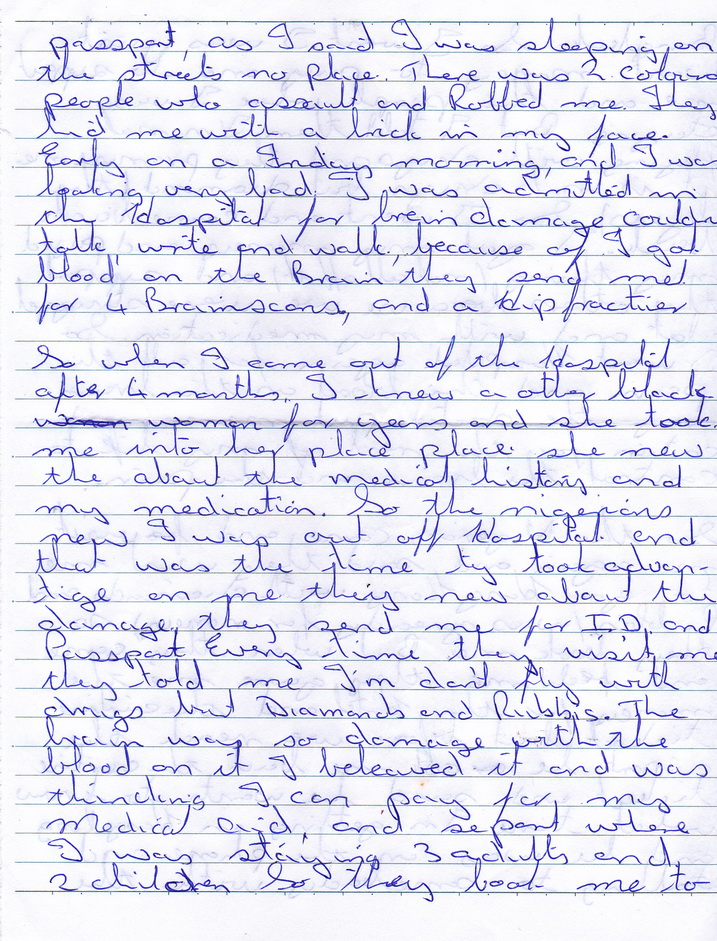 passport, as I said I was sleeping on
the streets no place. There was 2 coloured
people who assault and Robbed me. They
hid me with a brick in my face.
Early on a Friday morning, and I was
looking very bad. I was admitted in
the Hospital for brein damage couldn
talk, write and walk, because of I got
blood on the Brain they send me
for 4 Brainscans, and a Hip fractuer
So when I came out of the Hospital
after 4 months. I knew a other black
women for years and she took
me into her place place she new
the about the medical history and
my medication. So the nigerians
new I was out off Hospital and
that was the time ty took advan-
tige on me they new about the
damage, they send me for I.D and
Passport Every time they visit me
they told me I'm don't fly with
drugs but Diamonds and Rubbis. The
brain was so damage with the
blood on it I beleaved it and was
thincking I can pay for my
Medical aid, and seport where
I was staying 3 adults and
2 children So they book me to